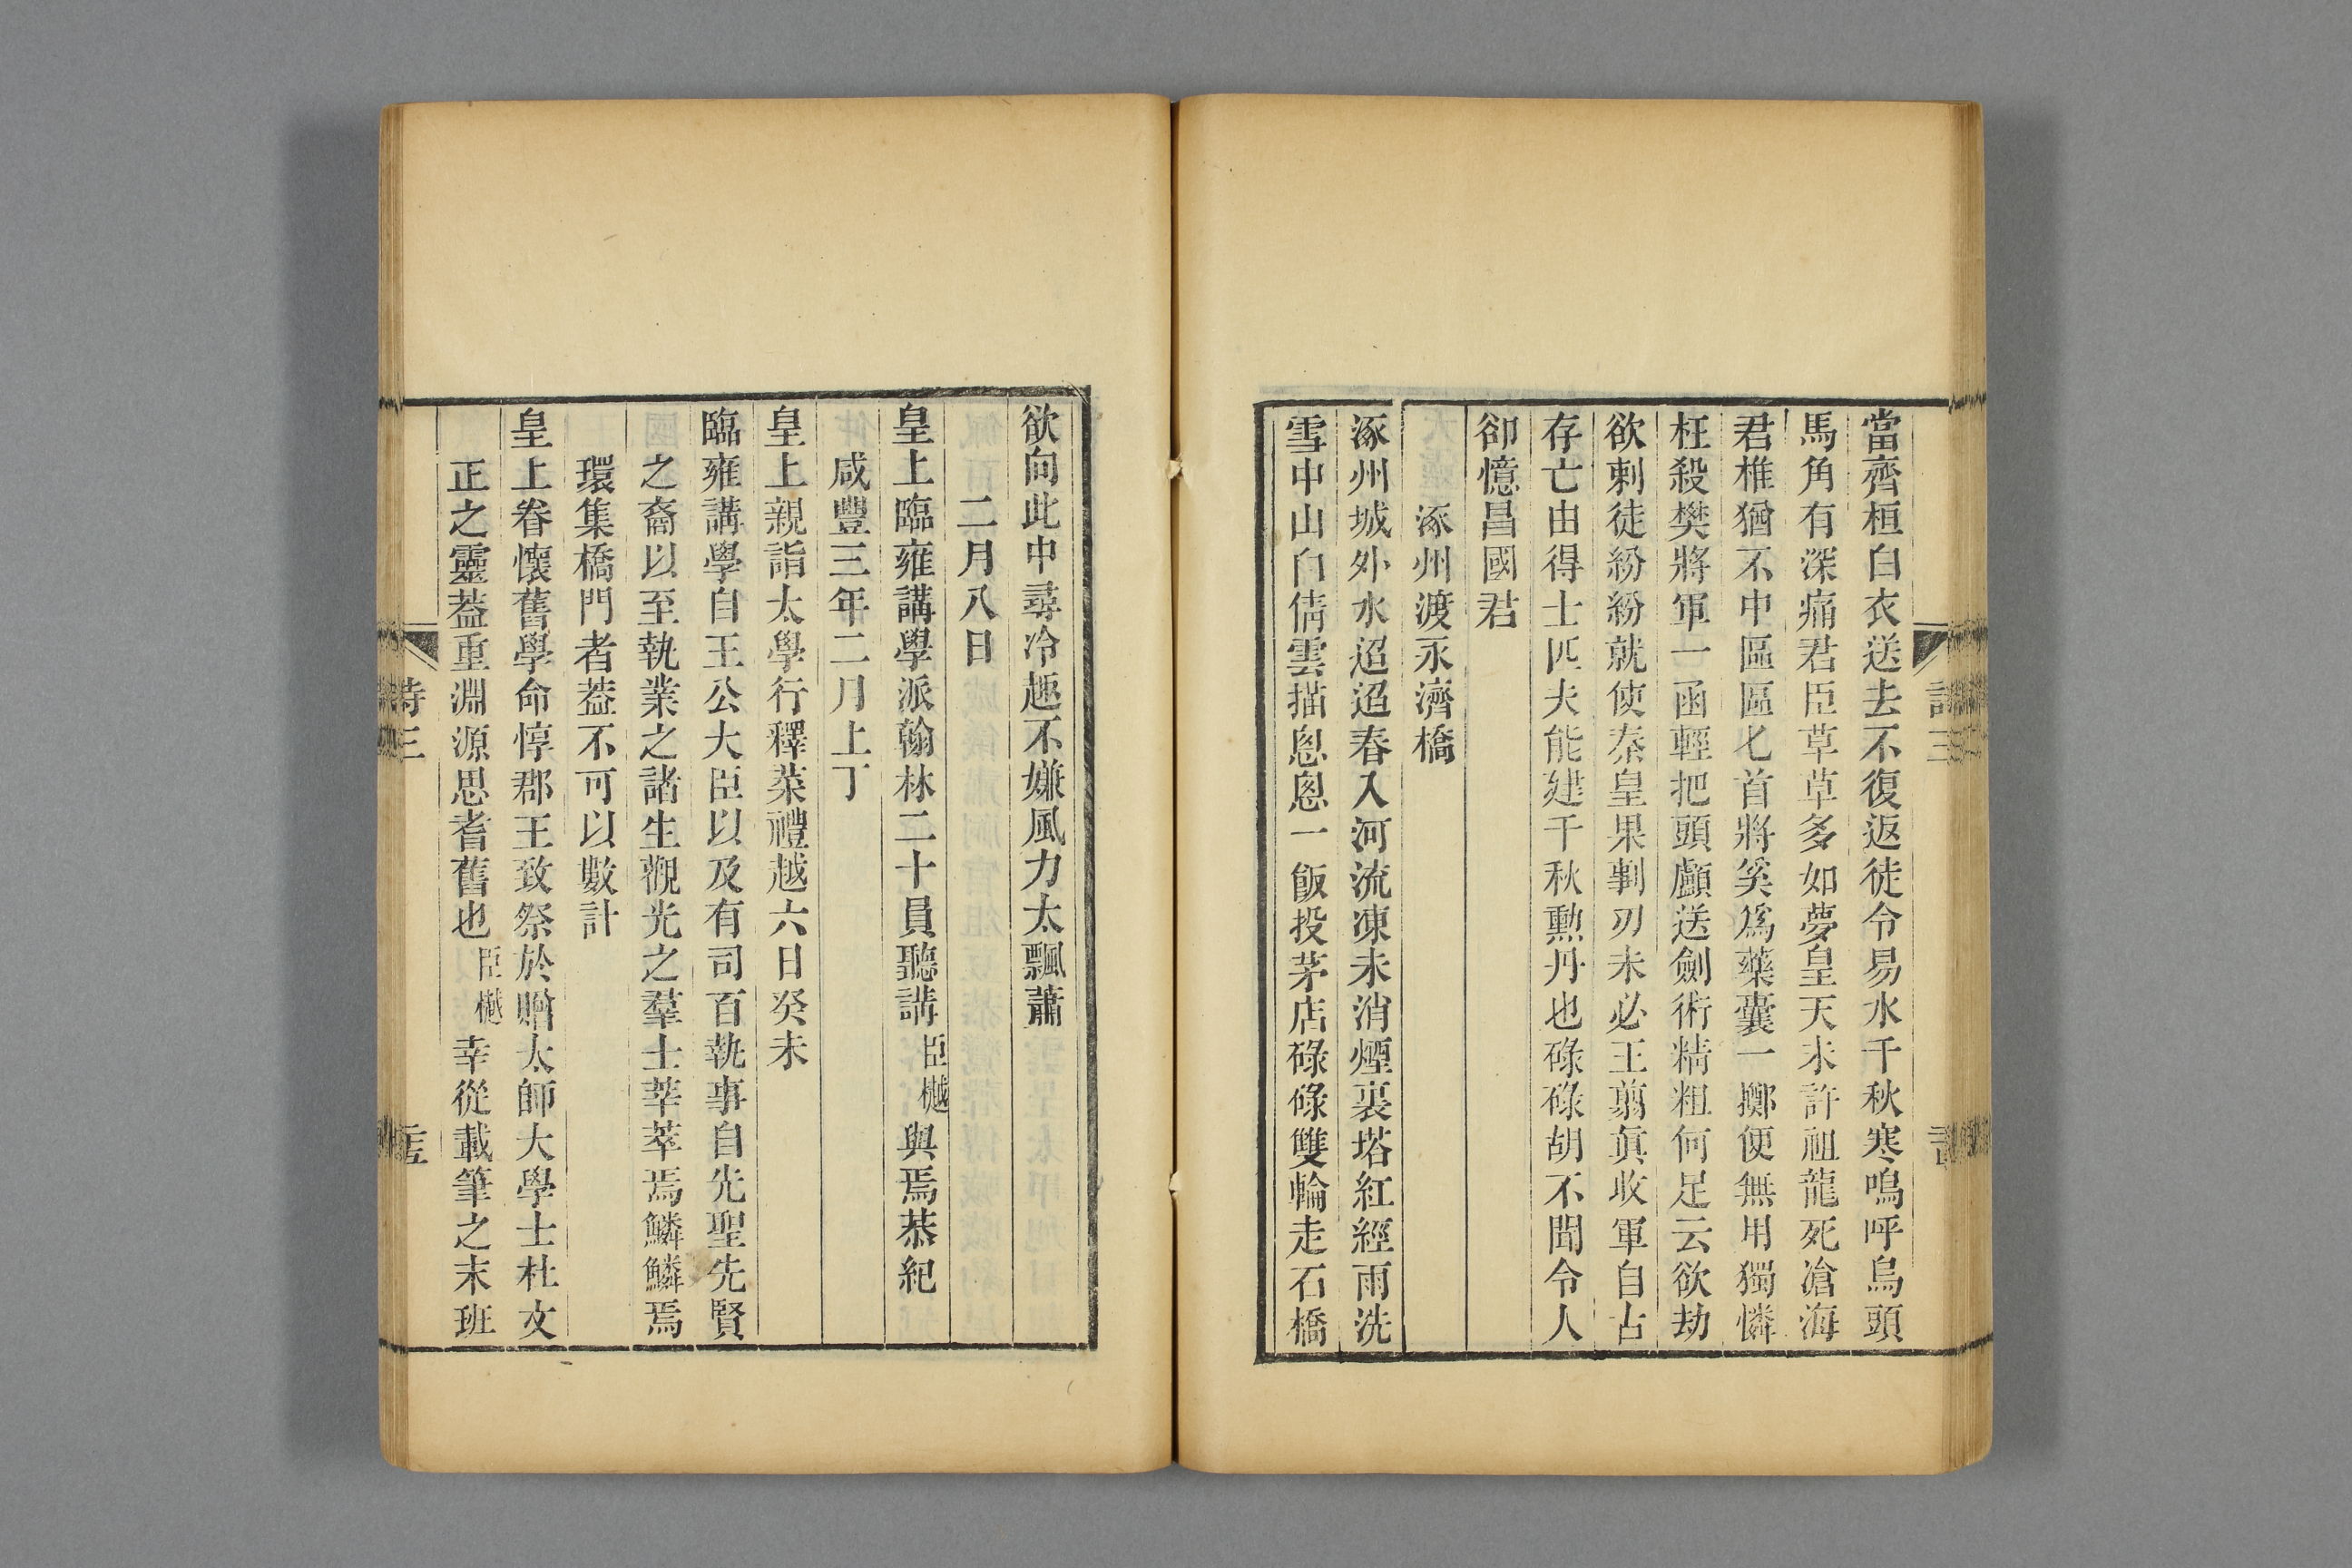 當齊桓白衣送去不復返徒令易水千秋寒嗚呼烏頭
馬角有深痛君臣草草多如夢皇天未許祖龍死滄海
君椎猶不中區區匕首將奚爲藥囊一擲便無用獨憐
枉殺樊將軍一函輕把頭顱送劍術精粗何足云欲劫
欲刺徒紛紛就使秦皇果剚刃未必王翦眞收軍自古
存亡由得士匹夫能建千秋勲丹也碌碌胡不聞令人
卻憶昌國君
涿州渡永濟橋
涿州城外水迢迢春入河流凍未消煙裏塔紅經雨洗
雪中山白倩雲描悤悤一飯投茅店碌碌雙輪走石橋
欲向此中尋冷趣不嫌風力太飄蕭
二月八日
皇上臨雍講學派翰林二十員聽講臣樾與焉恭紀
咸豐三年二月上丁
皇上親詣太學行釋菜禮越六日癸未
臨雍講學自王公大臣以及有司百執事自先聖先賢
之裔以至執業之諸生觀光之羣士莘莘焉鱗鱗焉
環集橋門者葢不可以數計
皇上眷懷舊學命惇郡王致祭於贈太師大學士杜文
正之靈葢重淵源思耆舊也臣樾幸從載筆之末班
詩三